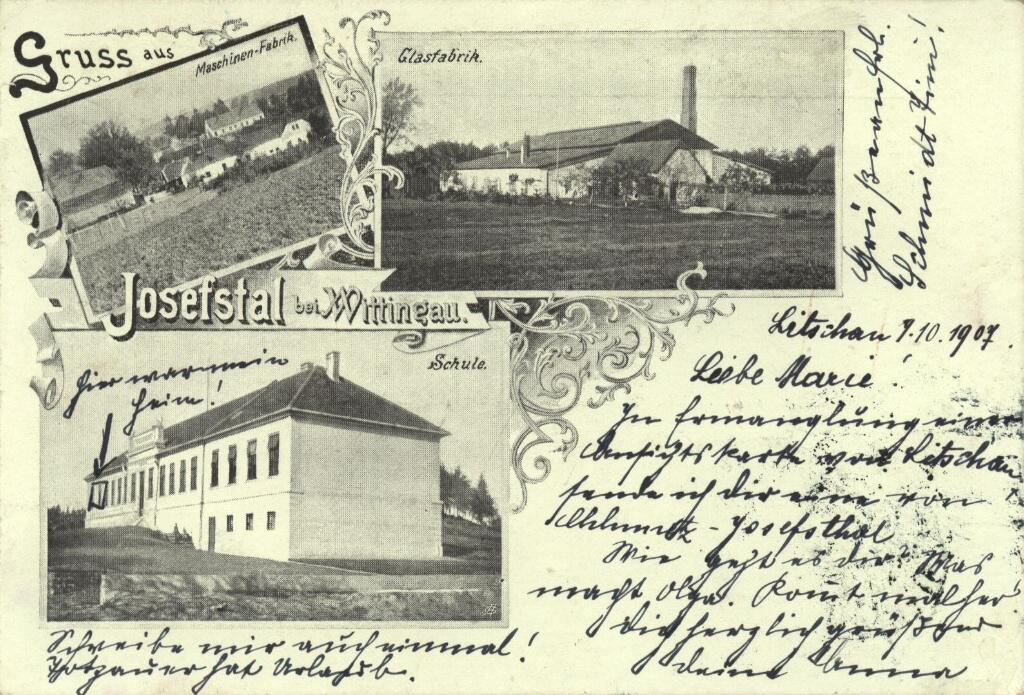 Gruss aus
Maschinen-Fabrik.
Glasfabrik.
Josefstal bei Wittingau.
Schule.
hier war mein
heim!
Litschau 7.10.1907.
Liebe Marie!
In Ermanglung einer
Ansichtskarte von Litschau
sende ich dir eine von
Chlumetz-Josefsthal
Wie geht es dir? Was
macht Olga. Komt mal her
Dich herzlich grüßend
deine Anna
Schreibe mir auch einmal!
hat Urlaub.
Grüße an
Schmidt